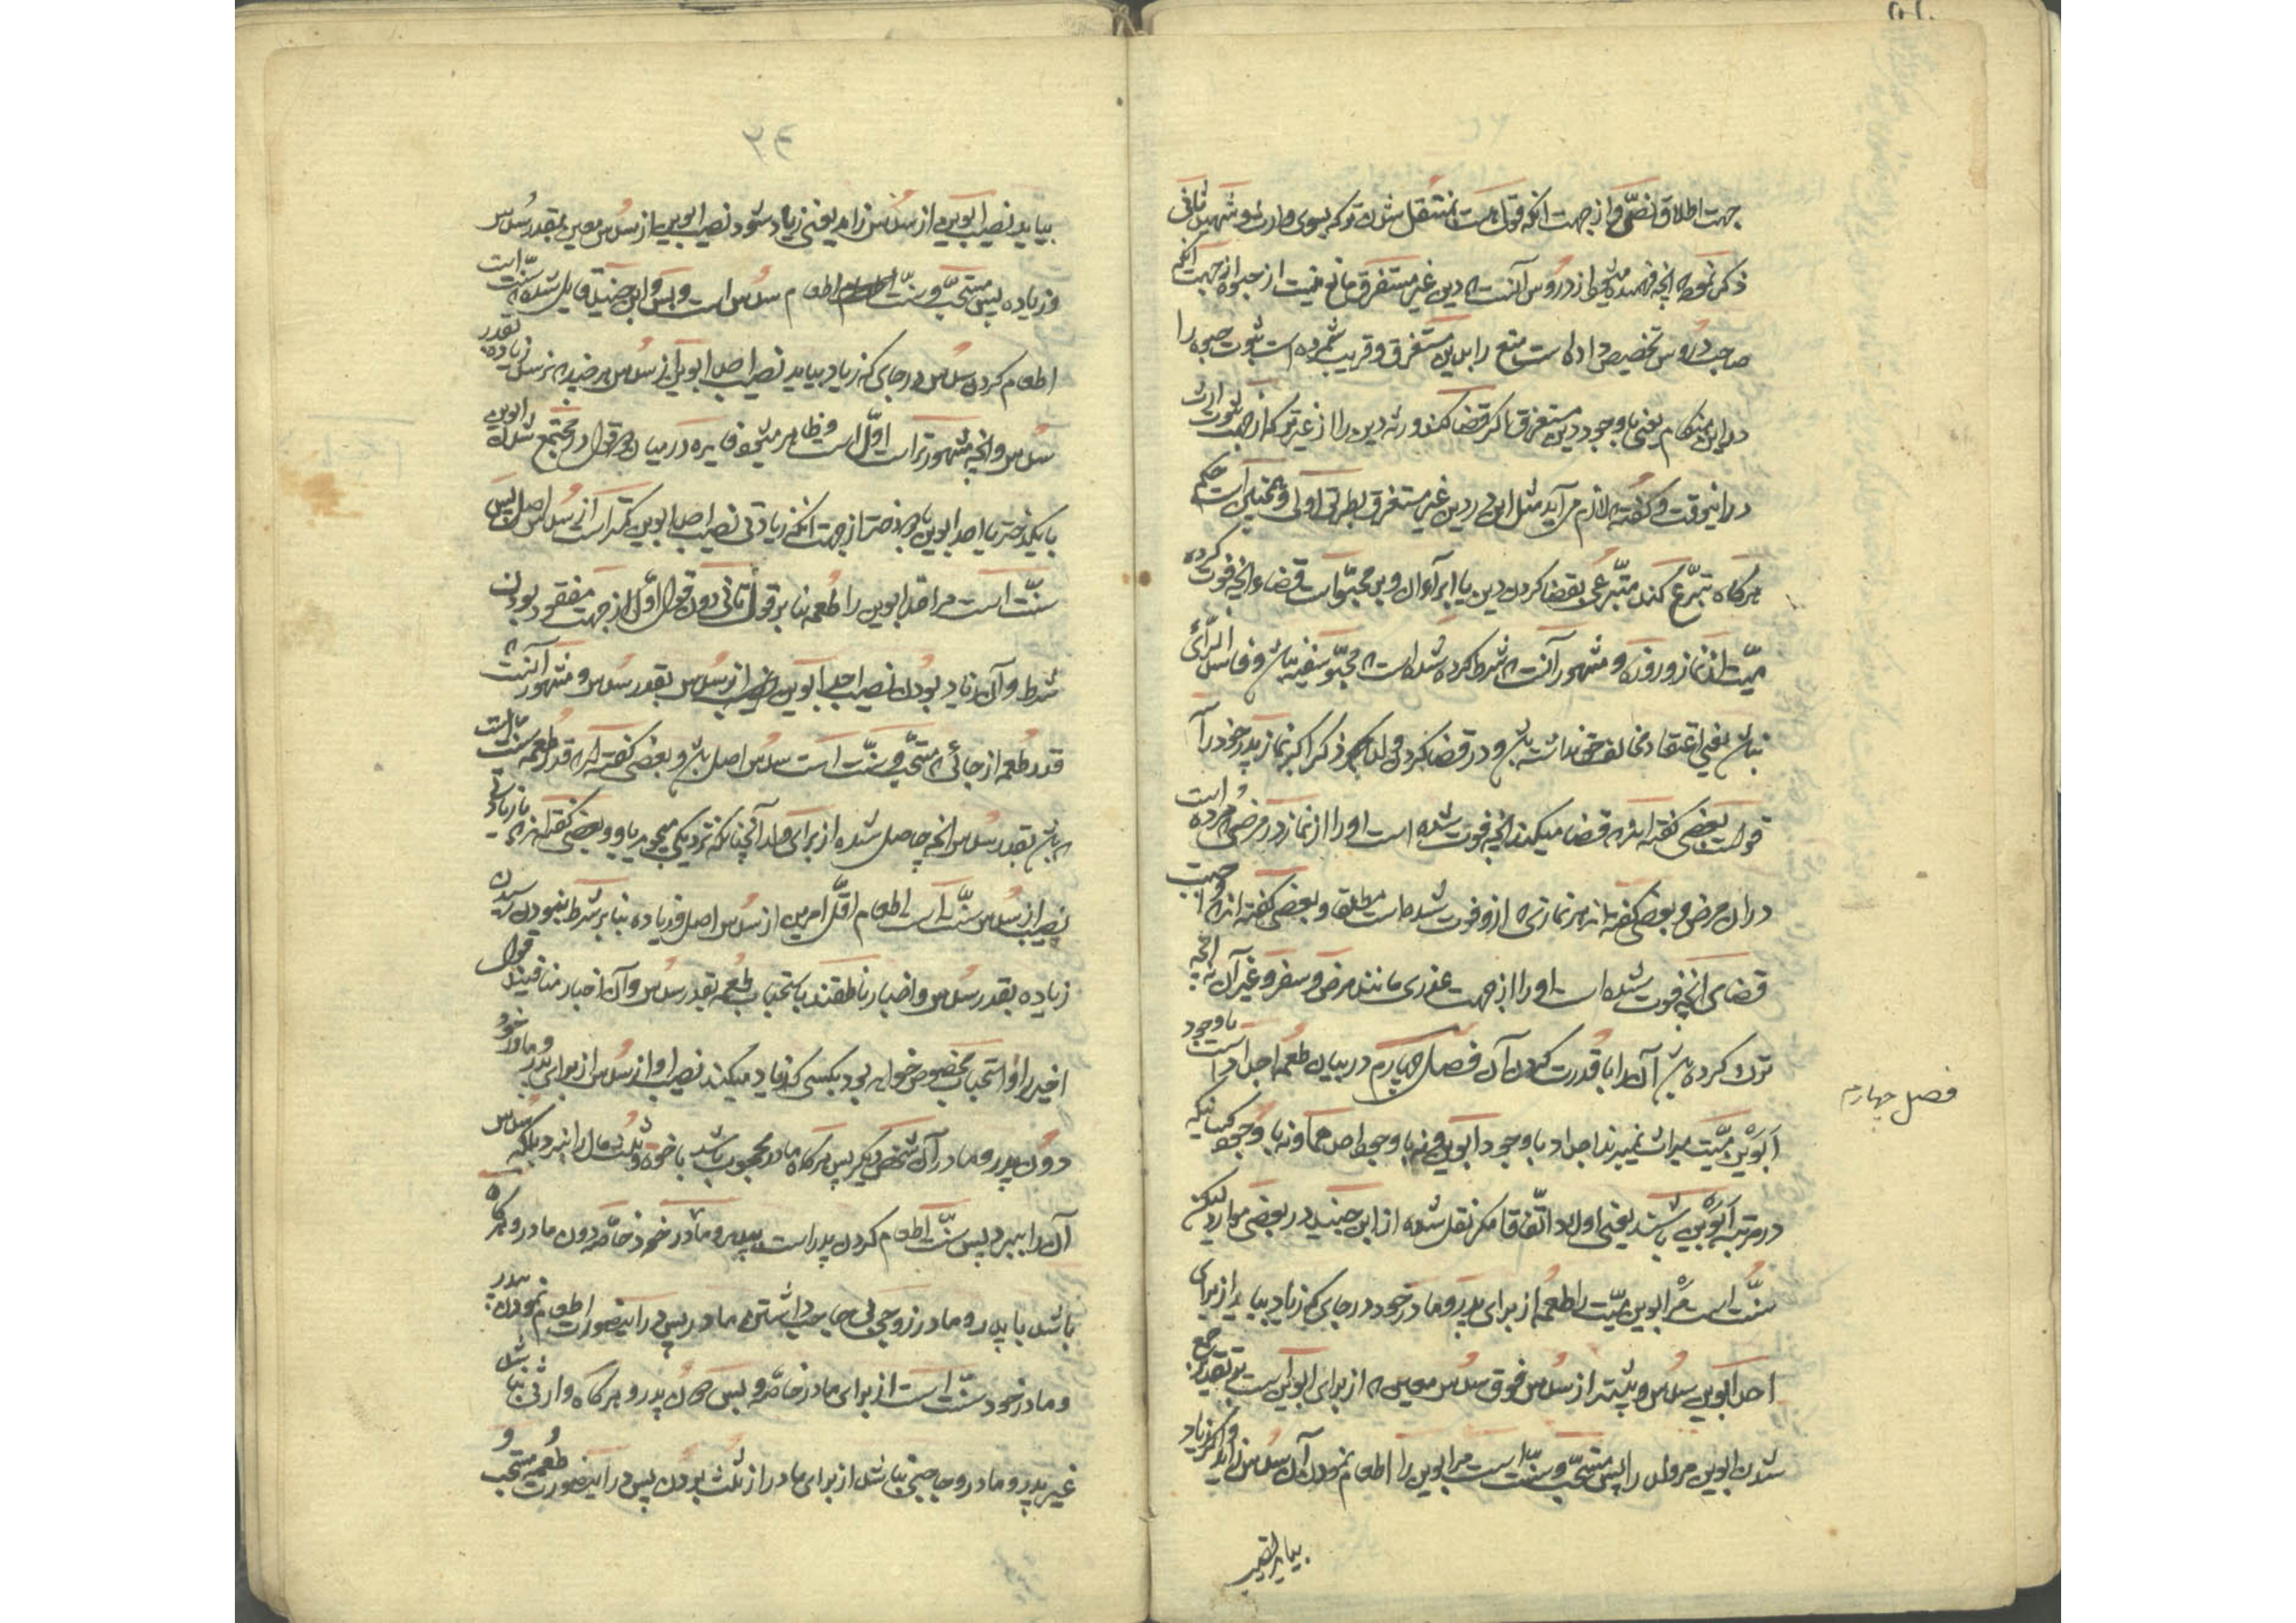 جهت اطلاق نصّ و از جهت آنکه قول است بمنتقل شدن ترکه بسوی وارث و شهید ثانی
ذکر نموده آنچه فهمیده میشود از دروس آنست که دین غیر مستغرق مانع نیست از حبوه از جهت آنکه
صاحب دروس تخصیص داده است منع را بدین مستغرق و قریب شمرده است ثبوت حبوه را
در این هنگام یعنی با وجود دین مستغرق اگر قضا کنند ورثه دین را از غیر ترکه از جهت ثبوت ارث
در این وقت و گفته که لازم می آید مثل این در دین غیر مستغرق بطریق اولی و همچنین است حکم
هرگاه تبرّع کند متبرّعی بقضا کردن دین یا ابراء آن و بر محبوّ است قضاء آنچه فوت کرده
میّت از نماز و روزه و مشهور آنست که شرط کرده شده است که محبوّ سفیه نباشد و فاسد الرّأی
نباشد یعنی اعتقاد مخالف حق نداشته باشد و در قضا کردن ولد ذکر اکبر نماز پدر خود را
قولست بعضی گفته اند که قضا میکند آنچه فوت شده است او را از نماز در مرضی که مرده است
در آن مرض و بعضی گفته اند هر نمازی که ازو فوت شده است مطلقا و بعضی گفته اند که واجبست
قضای آنچه فوت شده است او را از جهت عذری مانند مرض و سفر و غیر آن نه آنچه
ترک کرده باشد آن را با قدرت کردن آن فصل چهارم در بیان طعمه اجداد است با وجود
ابوین میّت میراث نمیبرند اجداد با وجود ابوین و نه با وجود احدهما و نه با وجود کسانیکه
در مرتبه ابوین باشند یعنی اولاد اتّفاقا مگر نقل شده از ابن جنید در بعضی موارد لیکن
سنّت است مر ابوین میّت را طعمه از برای پدر و مادر خود در جای که زیاد بیاید از برای
احد ابوین سدس و بیشتر از سدس فوق سدس معین که از برای ابوین است بر تقدیر جمع
شدن ابوین مر ولد را پس مستحبّ و سنّت است مر ابوین را اطعام نمودن آن سدس زاید و اگر زیاد
بیاید نصیب
فصل چهارم
۲۴
بیاید نصیب ابوین از سدس زاید یعنی زیاد شود نصیب ابوین از سدس معین بقدر سدس
و زیاده پس مستحبّ و سنّت اطعام سدس است و بس و ابن جنید قایل شده که سنّت است
اطعام کردن سدس در جای که زیاد بیاید نصیب احد ابوین از سدس هر چند که نرسد زیاده بقدر
سدس و آنچه مشهورتر است اوّل است و ظاهر میشود فایده در میان دو قول در مجتمع شدن ابوین
با یکدختر یا احد ابوین با دو دختر از جهت آنکه زیادتی نصیب احد ابوین کمتر است از سدس اصل پس
سنّت است مر احد ابوین را طعمه بنا بر قول ثانی دون قول اوّل از جهت مفقود بودن
شرط و آن زیاد بودن نصیب احد ابوین از سدس بقدر سدس و مشهور آنست که
قدر طعمه از جائی که مستحبّ و سنّت است سدس اصل باشد و بعضی گفته اند که قدر طعمه سنّت است
که باشد بقدر سدس آنچه حاصل شده از برای ولد آنچنانکه نزدیکی میجوید باو و بعضی گفته اند که با زیادتی
نصیب از سدس سنّت است اطعام اقلّ امرین از سدس اصل و زیاده بنا بر شرط نبودن رسیدن
زیاده بقدر سدس و اخبار ناطقند باستحباب طعمه بقدر سدس و آن اخبار منافیند قول
اخیر را و استحباب مخصوص خواهد بود بکسی که زیاد میکند نصیب او از سدس از برای پدر و مادر خود
دون پدر و مادر آن شخص دیگر پس هرگاه مادر محجوب باشد باخوه و ثلث مال را نبرد بلکه سدس
آن را ببرد پس سنّت اطعام کردن پدر است بپدر و مادر خود خاصّه دون مادر و هرگاه
باشد با پدر و مادر زوجی بی حاجب داشتن مادر پس در این صورت اطعام نمودن پدر
و مادر خود سنّت است از برای مادر خاصّه و بس دون پدر و هرگاه وارثی نباشد
غیر پدر و مادر و حاجبی نباشد از برای مادر از ثلث بردن پس در این صورت طعمه مستحب و